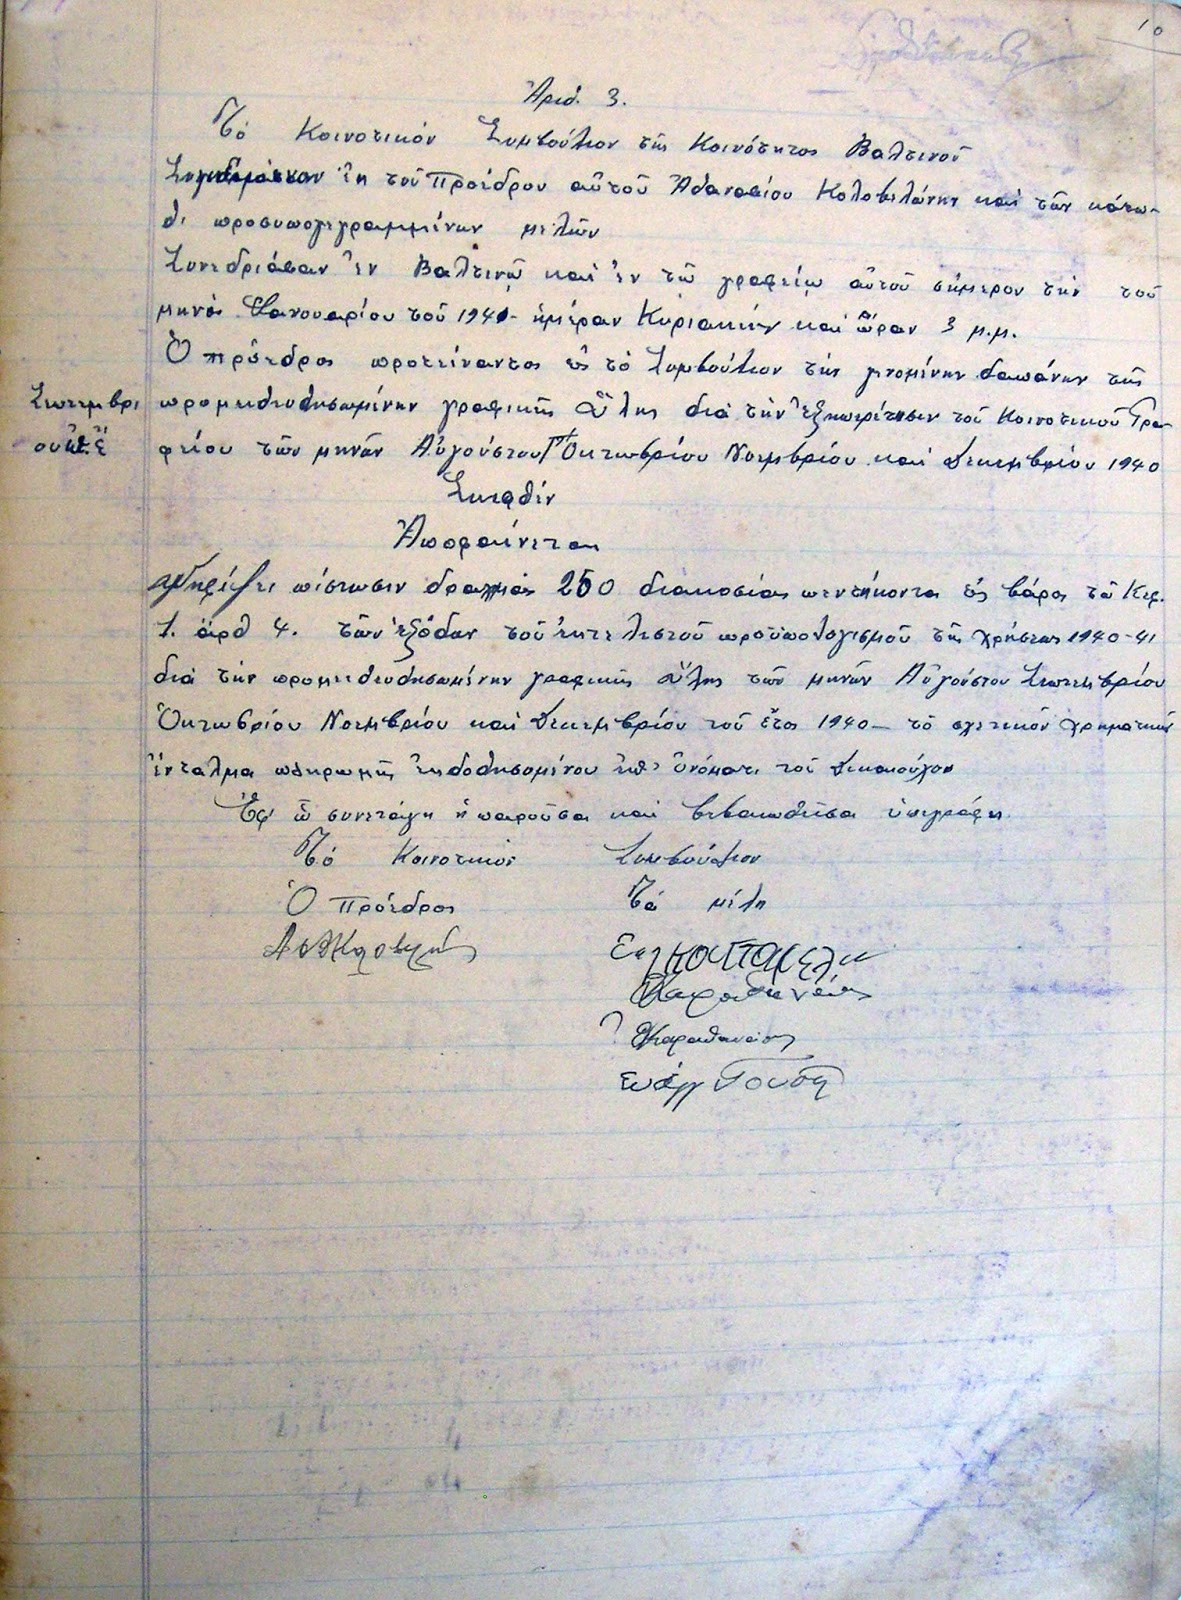 10
Ἀριθ. 3.
Τό Κοινοτικόν Συμβούλιον τῆς Κοινότητος Βαλτινοῦ
ἐκ τοῦ Προέδρου αὐτοῦ Ἀθανασίου Κολοβελώνην καί τῶν κάτω-
θι προσυπογεγραμμένων μελῶν
Συνεδριάσαν ἐν Βαλτινῷ καί ἐν τῷ γραφείῳ αὐτοῦ σήμερον τήν τοῦ
μηνός Ἰανουαρίου τοῦ 1941 ἡμέραν Κυριακήν καί ὥραν 3 μ.μ.
Ὁ πρόεδρος προτείναντος εἰς τό Συμβούλιον τήν γενομένην δαπάνην τῆς
προμηθευθησωμένην γραφικῆς ὕλης διά τήν ἐξηπερέτησιν τοῦ Κοινοτικοῦ Γρα-
φείου τῶν μηνῶν Αὐγούστου/ Ὀκτωβρίου Νοεμβρίου καί Δεκεμβρίου 1940
Σεπτεμβρί
ου
Σκεφθέν
Ἀποφαίνεται
πίστωσιν δραχμάς 250 διακοσίας πεντήκοντα εἰς βάρος τοῦ Κεφ.
1. ἀρθ 4. τῶν ἐξόδων τοῦ ἐκτελεστοῦ προϋπολογισμοῦ τῆς χρήσεως 1940-41
διά τήν προμηθευθησωμένην γραφικῆς ὕλης τῶν μηνῶν Αὐγούστου Σεπτεμβρίου
Ὀκτωβρίου Νοεμβρίου καί Δεκεμβρίου τοῦ ἔτος 1940 – τό σχετικόν χρηματικόν
ἔνταλμα πληρωμῆς ἐκδοθησομένου ἐπ' ὀνόματι τοῦ Δικαιούχου
Ἐφ' ᾧ συνετάγη ἡ παροῦσα καί βεβαιωθεῖσα ὑπεγράφη.
Τό Κοινοτικόν Συμβούλιον
Ὁ Πρόεδρος Τά μέλη